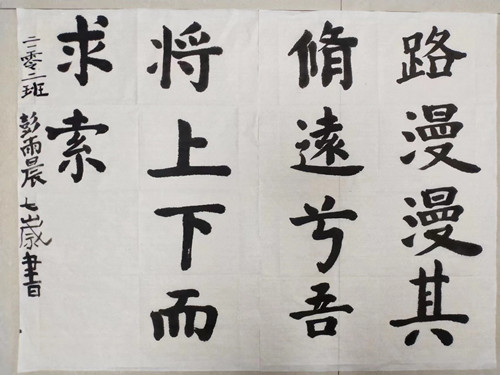 路漫漫其
脩遠兮吾
将上下而
求索
二零二班 彭雨晨 七歲書